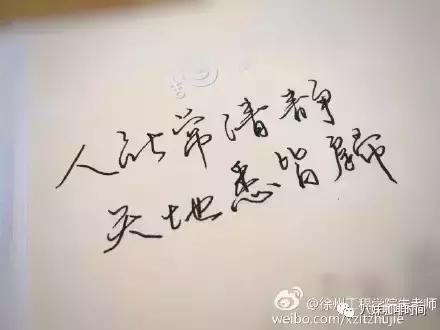 人能常清静
天地悉皆歸
@徐州工程学院朱老师
weibo.com/xzitzhujie
八妹咖啡时间